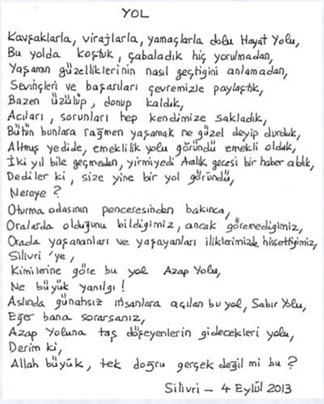 YOL
Kavşaklarla, virajlarla, yamaçlarla dolu Hayat Yolu,
Bu yolda koştuk, çabaladık hiç yorulmadan,
Yaşamın güzelliklerinin nasıl geçtiğini anlamadan,
Sevinçleri ve başarıları çevremizle paylaştık,
Bazen üzülüp, donup kaldık,
Acıları, sorunları hep kendimize sakladık,
Bütün bunlara rağmen yaşamak ne güzel deyip durduk,
Altmış yedide, emeklilik yolu göründü emekli olduk,
İki yıl bile geçmeden, yirmiyedi Aralık gecesi bir haber aldık,
Dediler ki, size yine bir yol göründü,
Nereye?
Oturma odasının penceresinden bakınca,
Oralarda olduğunu bildiğimiz, ancak göremediğimiz,
Orada yaşananları ve yaşayanları iliklerimizde hissettiğimiz,
Silivri'ye,
Kimilerine göre bu yol Azap Yolu,
Ne büyük yanılgı!
Aslında günahsız insanlara açılan bu yol, Sabır Yolu,
Eğer bana sorarsanız,
Azap Yoluna taş döşeyenlerin gidecekleri yolu,
Derim ki,
Allah büyük, tek doğru gerçek değil mi bu?
Silivri - 4 Eylül 2013